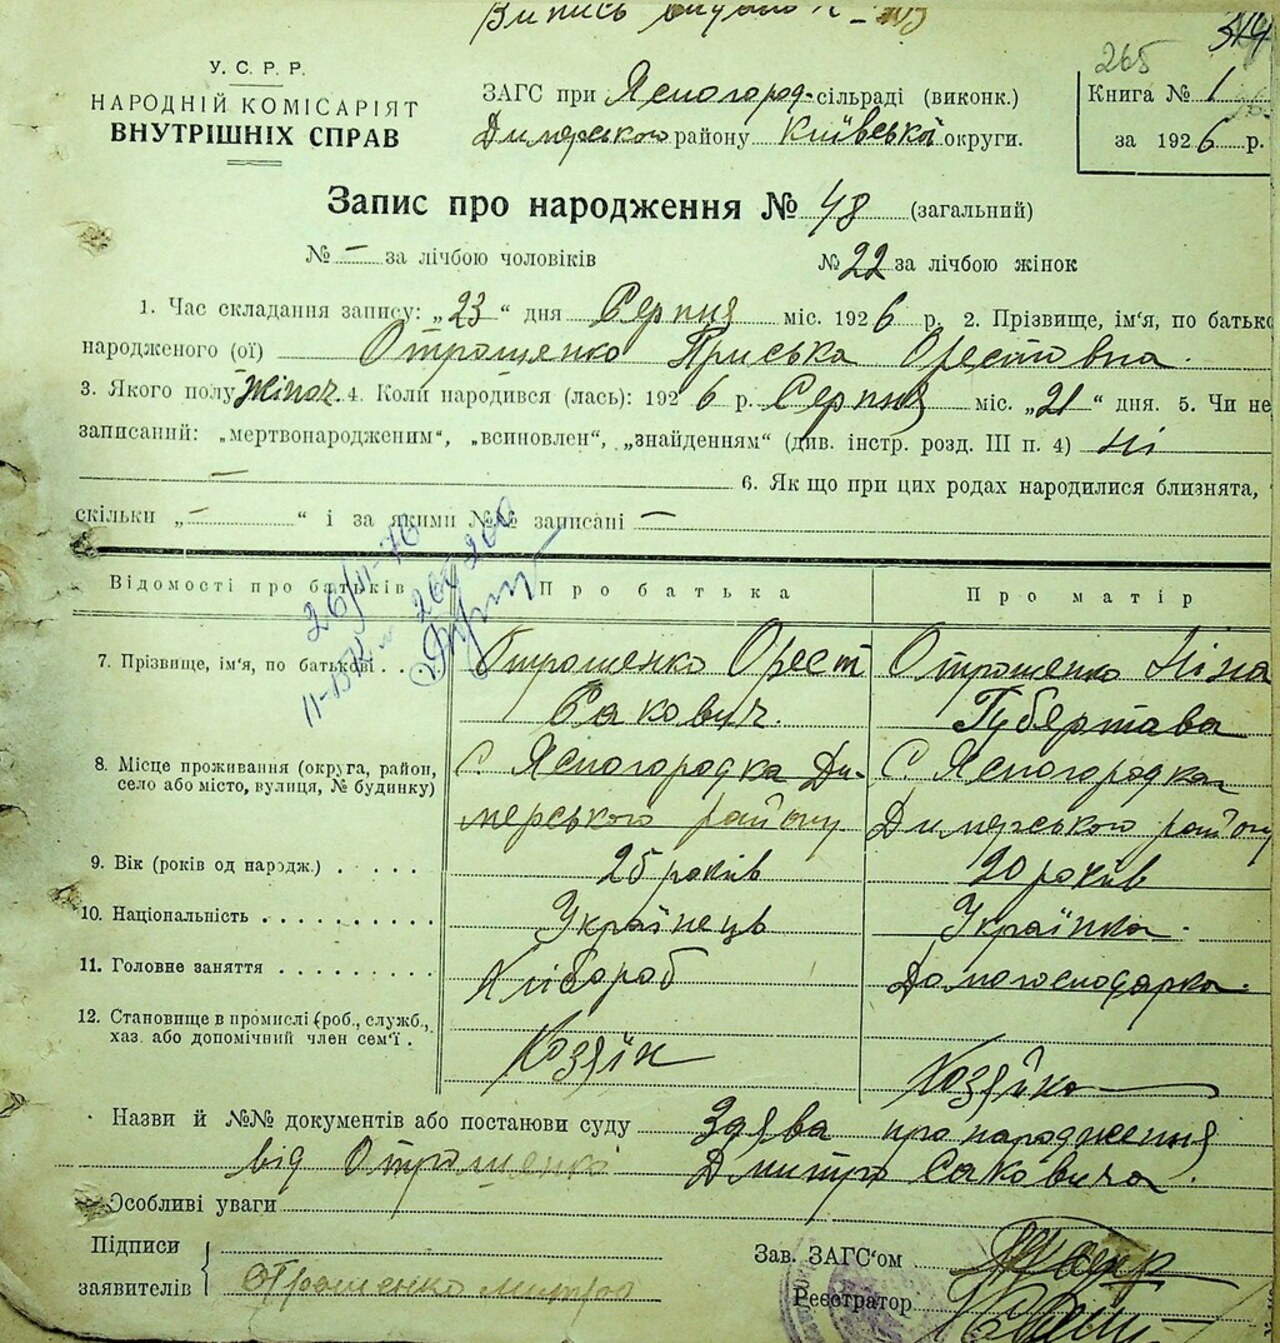 Випись видано
314
265
У. С. Р. Р.
НАРОДНІЙ КОМІСАРІЯТ
ВНУТРІШНІХ СПРАВ
ЗАГС при Ясногород-сільраді (виконк.)
Димерського району Київської округи.
Книга № 1
за 1926 р.
Запис про народження № 48 (загальний)
№ — за лічбою чоловіків № 22 за лічбою жінок
1. Час складання запису: „23“ дня Серпня міс. 1926 р. 2. Прізвище, ім‘я, по батько
народженого (ої) Отрошенко Приська Орестовна.
3. Якого полу Жіноч. 4. Коли народився (лась): 1926 р. Серпня міс. „21“ дня. 5. Чи не
записаний: „мертвонародженим“, „всиновлен“, „знайденням“ (див. інстр. розд. III п. 4) Ні
— 6. Як що при цих родах народилися близнята,
скільки „—“ і за якими №№ записані —
Відомості про батьків Про батька Про матір
7. Прізвище, ім‘я, по батькові . . Отрошенко Орест Отрошенко Ніна
Сакович. Губертава
8. Місце проживання (округа, район, С. Ясногородка Ди- С. Ясногородка
село або місто, вулиця, № будинку) мерського району Димерського району
9. Вік (років од народж.) . . . . 25 років 20 років
10. Національність . . . . . . . . . . Українець Українка.
11. Головне заняття . . . . . . . . . Хлібороб Домогосподарка.
12. Становище в промислі (роб., служб.,
хаз. або допомічний член сем‘ї . Хозяїн Хозяйка
Назви й №№ документів або постанови суду Здява про народження
від Отрошенко Дмитра Саковича.
Особливі уваги
Підписи
заявителів Отрошенко митро
Зав. ЗАГС‘ом
Реєстратор